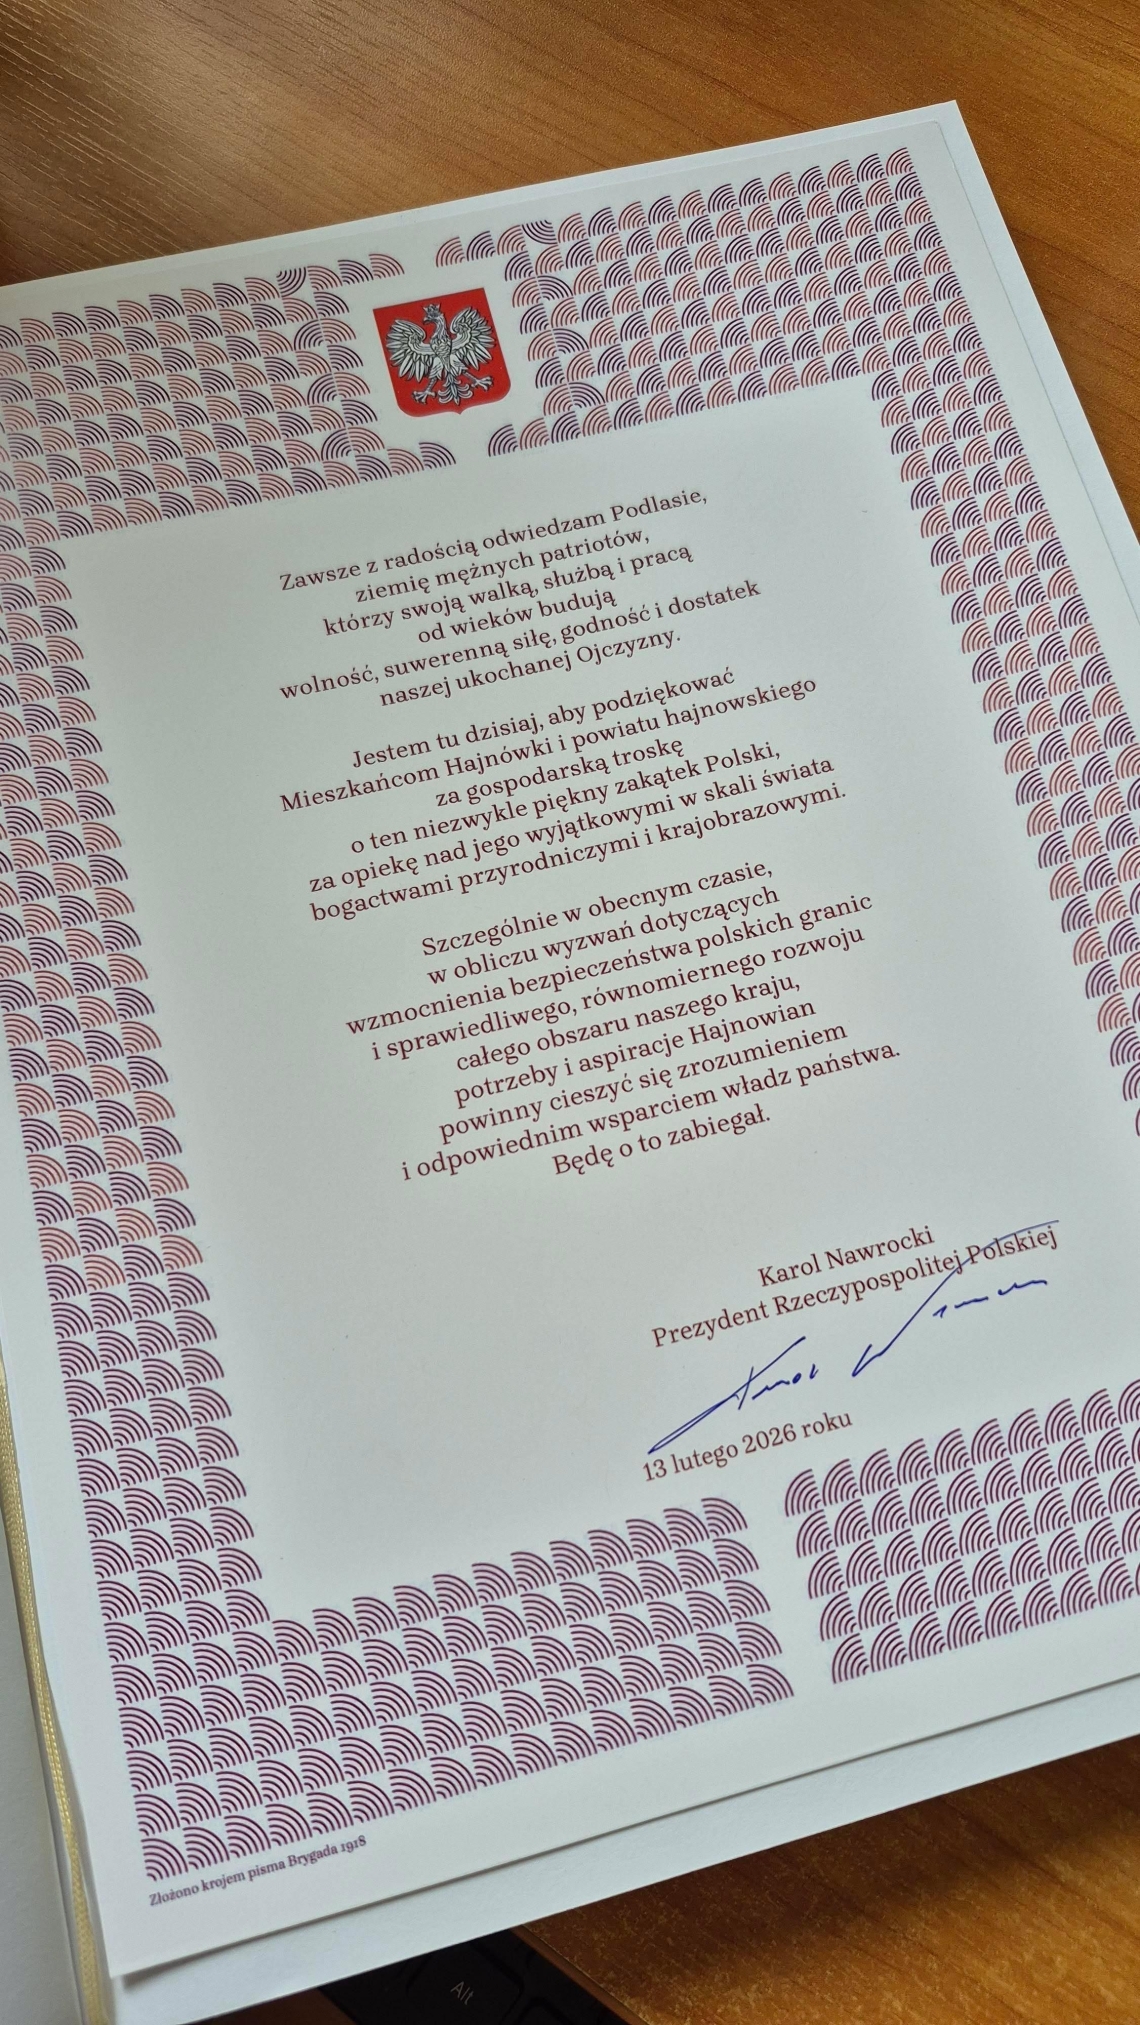 Zawsze z radością odwiedzam Podlasie,
ziemię mężnych patriotów,
którzy swoją walką, służbą i pracą
od wieków budują
wolność, suwerenną siłę, godność i dostatek
naszej ukochanej Ojczyzny.
Jestem tu dzisiaj, aby podziękować
Mieszkańcom Hajnówki i powiatu hajnowskiego
za gospodarską troskę
o ten niezwykle piękny zakątek Polski,
za opiekę nad jego wyjątkowymi w skali świata
bogactwami przyrodniczymi i krajobrazowymi.
Szczególnie w obecnym czasie,
w obliczu wyzwań dotyczących
wzmocnienia bezpieczeństwa polskich granic
i sprawiedliwego, równomiernego rozwoju
całego obszaru naszego kraju,
potrzeby i aspiracje Hajnowian
powinny cieszyć się zrozumieniem
i odpowiednim wsparciem władz państwa.
Będę o to zabiegał.
Karol Nawrocki
Prezydent Rzeczypospolitej Polskiej
13 lutego 2026 roku
Złożono krojem pisma Brygada 1918
Alt